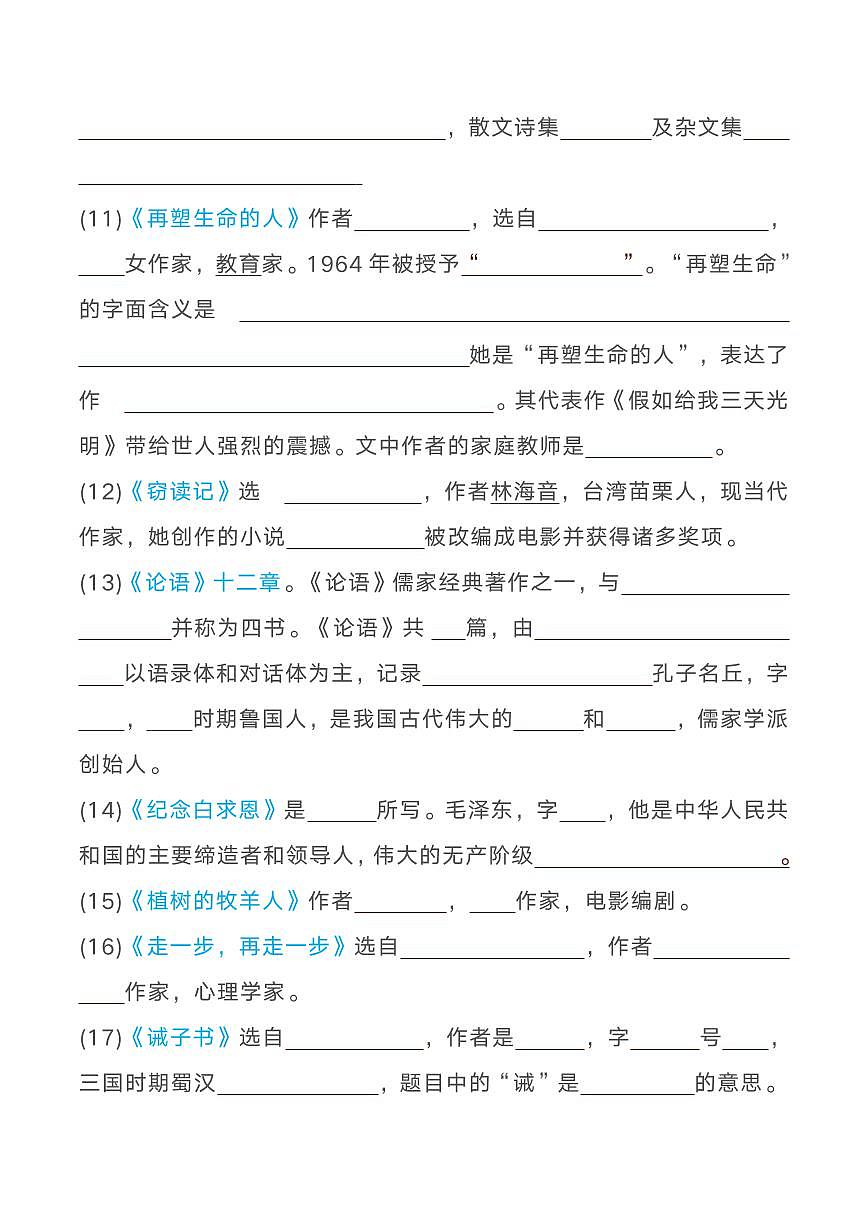 ____________________，散文诗集______及杂文集____
____________________
(11)《再塑生命的人》作者________，选自________________，
____女作家，教育家。1964 年被授予“__________”。“再塑生命”
的字面含义是 ________________________________
________________________她是“再塑生命的人”，表达了
作 ________________________。其代表作《假如给我三天光
明》带给世人强烈的震撼。文中作者的家庭教师是________。
(12)《窃读记》选 __________，作者林海音，台湾苗栗人，现当代
作家，她创作的小说__________被改编成电影并获得诸多奖项。
(13)《论语》十二章。《论语》儒家经典著作之一，与____________
______并称为四书。《论语》共 ___篇，由________________
____以语录体和对话体为主，记录________________孔子名丘，字
____，____时期鲁国人，是我国古代伟大的______和______，儒家学派
创始人。
(14)《纪念白求恩》是______所写。毛泽东，字____，他是中华人民共
和国的主要缔造者和领导人，伟大的无产阶级________________。
(15)《植树的牧羊人》作者________，____作家，电影编剧。
(16)《走一步，再走一步》选自____________，作者__________
____作家，心理学家。
(17)《诫子书》选自__________，作者是______，字______号____，
三国时期蜀汉____________，题目中的“诫”是________的意思。